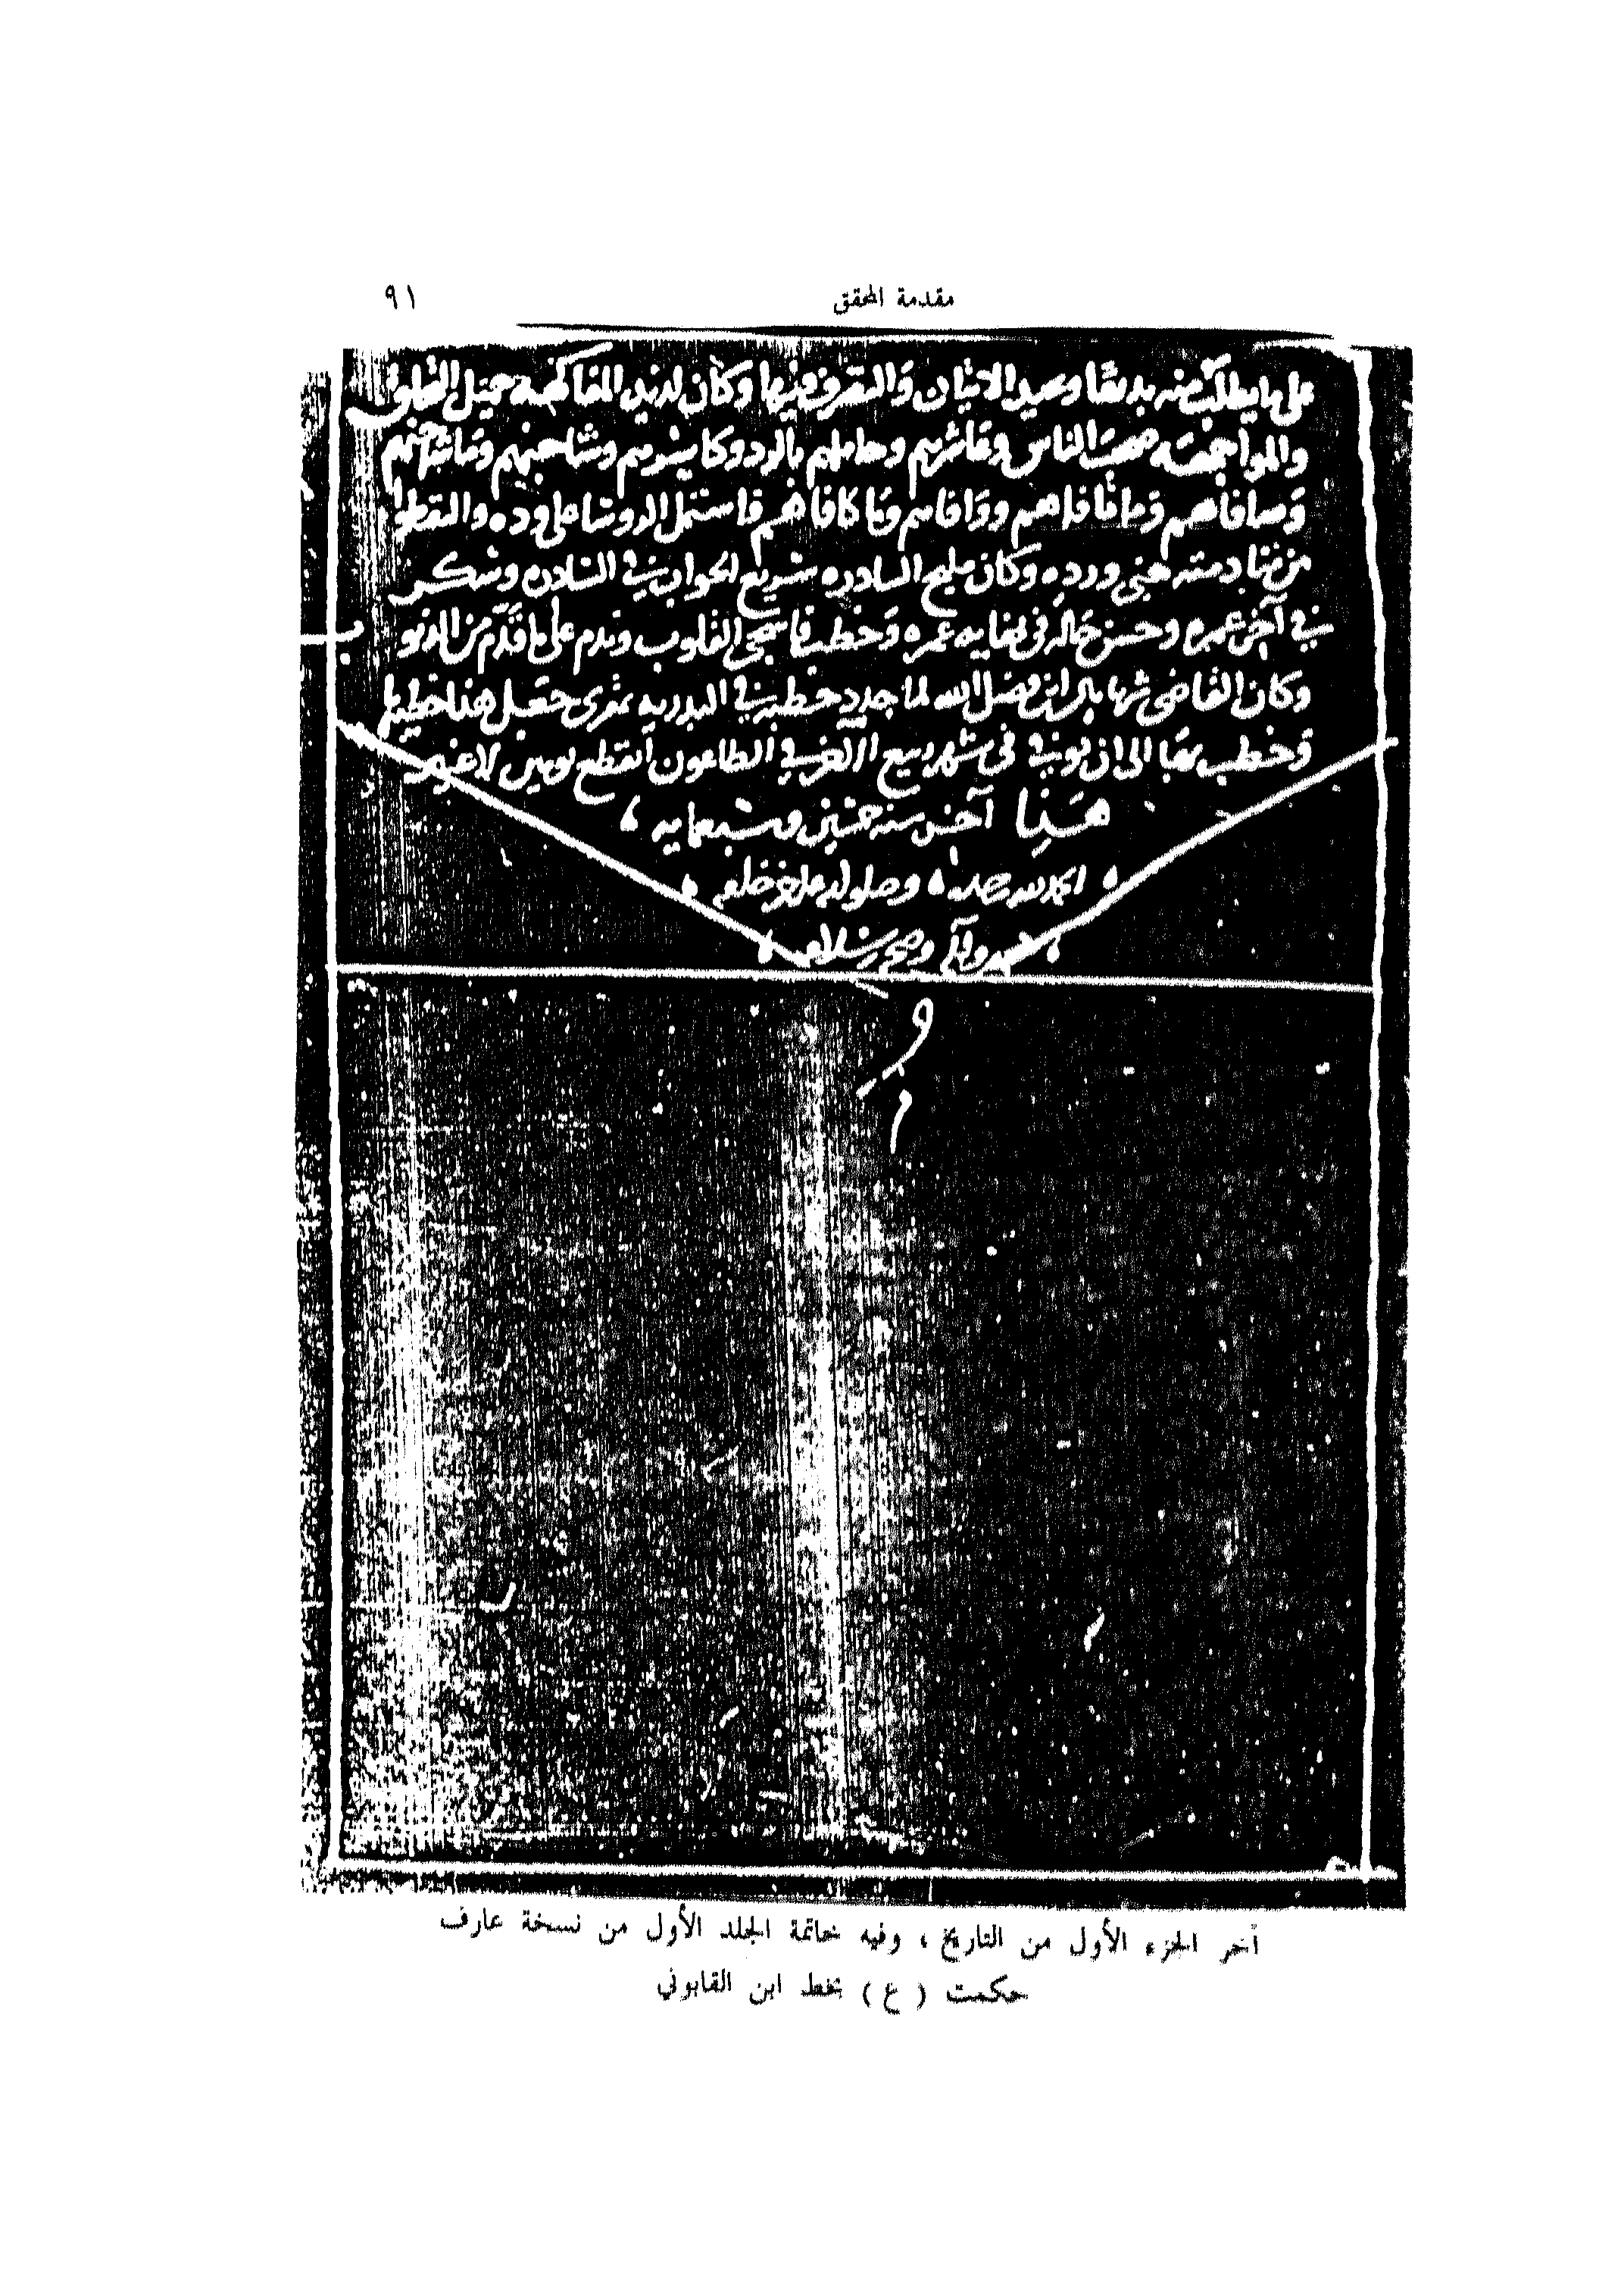 مقدمة المحقق ٩١
على ما يطلب منه بديعًا وعبيد الاتيان والتصرف فيها وكان لذيذ المفاكهة جميل التخلق
والمواجهة صحب الناس وعاشرهم وحاملهم بالود وكاشرهم وشاحنهم
وصافاهم ووافاهم وكافاهم فاشتمل الدوشا على وده والتقطوا
من دمنه جنى ورده وكان مليح النادره سريع الجواب في النادره وشكر
في آخر عمره وحسن حاله في نهاية عمره وخطب فاشجى القلوب وندم على ما قدم من الذنوب
وكان القاضي شهاب الدين ابن فضل الله لما جدد خطبة في البدرية بمقرى جعل هذا خطيبا
وخطب بها الى ان توفي في شهر ربيع الآخر في الطاعون انقطع يومين لا غير
هذا آخر سنة خمسين وسبعماية
الحمد لله وحده وصلواته على خير خلقه
محمد وآله وصحبه وسلامه
آخر الجزء الأول من التاريخ ، وفيه خاتمة المجلد الأول من نسخة عارف
حكمت ( ع ) بخط ابن القابوني